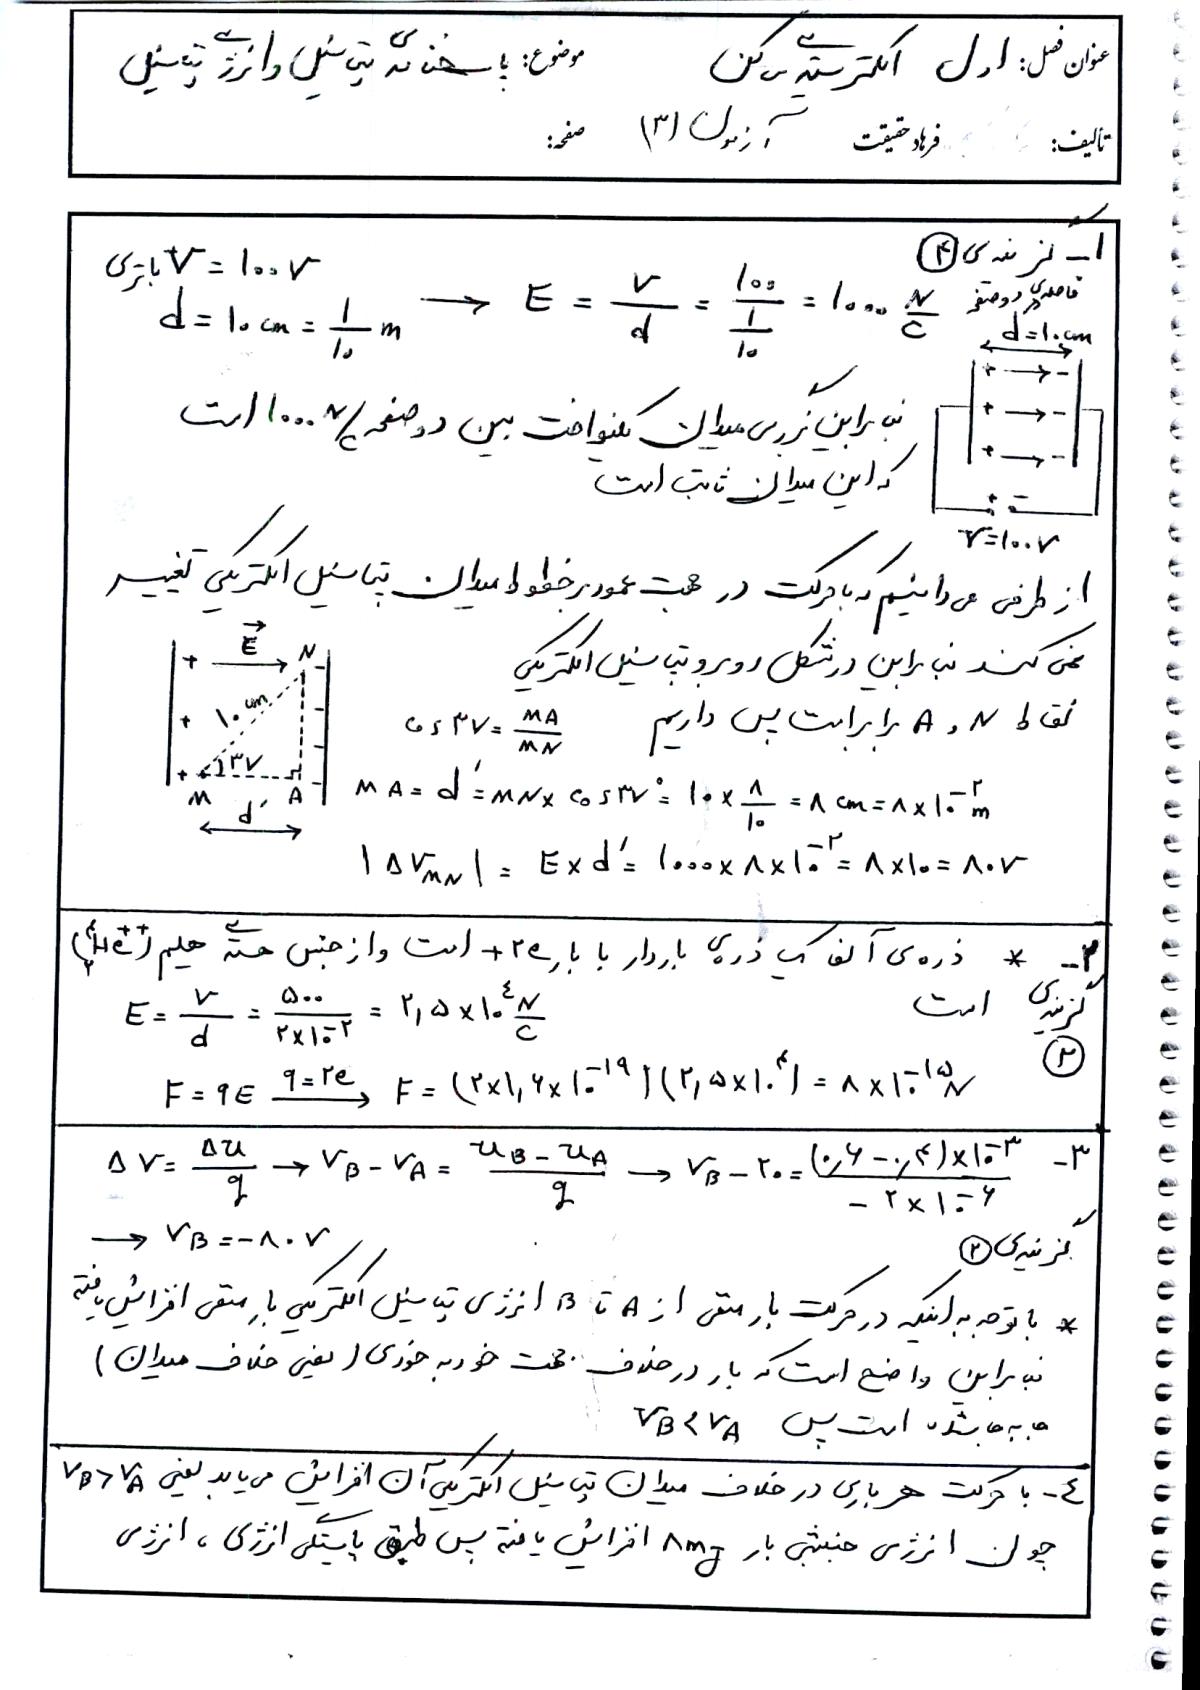 عنوان فصل: اول الکتریسیته ساکن موضوع: پاسخنامه پتانسیل و انرژی پتانسیل
تألیف: فرهاد حقیقت آزمون (۳) صفحه:
۱- گزینه‌ی ۴
باتری V = ۱۰۰ V
d = ۱۰ cm = ۱/۱۰ m → E = V/d = ۱۰۰/(۱/۱۰) = ۱۰۰۰ N/C
فاصله‌ی دو صفحه
d = ۱۰ cm
+ → -
+ → -
+ → -
+ -
V = ۱۰۰ V
بنابراین بزرگی میدان یکنواخت بین دو صفحه ۱۰۰۰ N/C است
که این میدان ثابت است
از طرفی می‌دانیم که با حرکت در جهت عمود بر خطوط میدان پتانسیل الکتریکی تغییر
نمی‌کند بنابراین در شکل روبرو پتانسیل الکتریکی
نقاط N و A برابر است پس داریم cos ۳۷ = MA/MN
E N
۱۰ cm
۳۷
M A
d′
MA = d′ = MN × cos ۳۷° = ۱۰ × ۸/۱۰ = ۸ cm = ۸ × ۱۰^-۲ m
|ΔV_MN| = E × d′ = ۱۰۰۰ × ۸ × ۱۰^-۲ = ۸ × ۱۰ = ۸۰ V
۲- * ذره‌ی آلفا یک ذره‌ی باردار با بار +۲e است و از جنس هسته‌ی هلیم (⁴₂He⁺⁺)
است
گزینه‌ی ۳
E = V/d = ۵۰۰/(۲ × ۱۰^-۲) = ۲٫۵ × ۱۰^۴ N/C
F = qE —q=۲e→ F = (۲ × ۱٫۶ × ۱۰^-۱۹)(۲٫۵ × ۱۰^۴) = ۸ × ۱۰^-۱۵ N
۳- ΔV = Δu/q → V_B - V_A = (u_B - u_A)/q → V_B - ۲۰ = (۰٫۶ - ۰٫۴) × ۱۰^-۳ / -۲ × ۱۰^-۶
→ V_B = -۸۰ V گزینه‌ی ۲
* با توجه به اینکه در حرکت بار منفی از A تا B انرژی پتانسیل الکتریکی بار منفی افزایش یافته
بنابراین واضح است که بار در خلاف جهت خودبه‌خودی (یعنی خلاف میدان)
جابه‌جا شده است پس V_B < V_A
۴- با حرکت هر باری در خلاف میدان پتانسیل الکتریکی آن افزایش می‌یابد یعنی V_B > V_A
چون انرژی جنبشی بار ۸ mJ افزایش یافته پس طبق پایستگی انرژی، انرژی